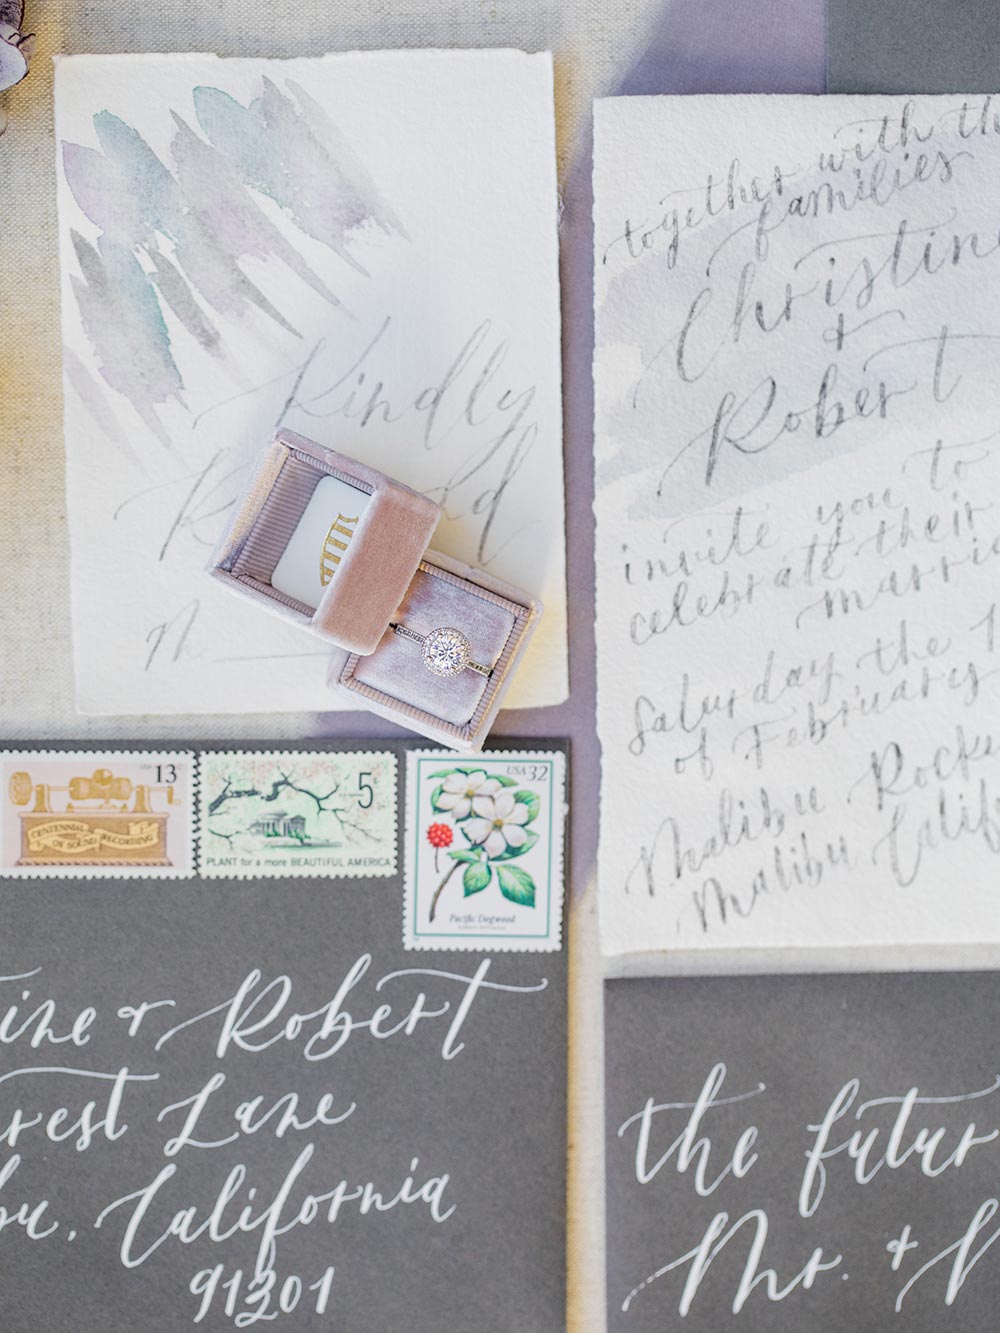 Kindly
together with th
families
Christin
+
Robert
invite you to
celebrate their
marri
Saturday the 1
of February
Malibu Rock
Malibu Calif
USA 13
CENTENNIAL OF SOUND RECORDING
5
PLANT for a more BEAUTIFUL AMERICA
USA 32
Pacific Dogwood
ine & Robert
rest Lane
bu, California
91301
the futur
Mr. +